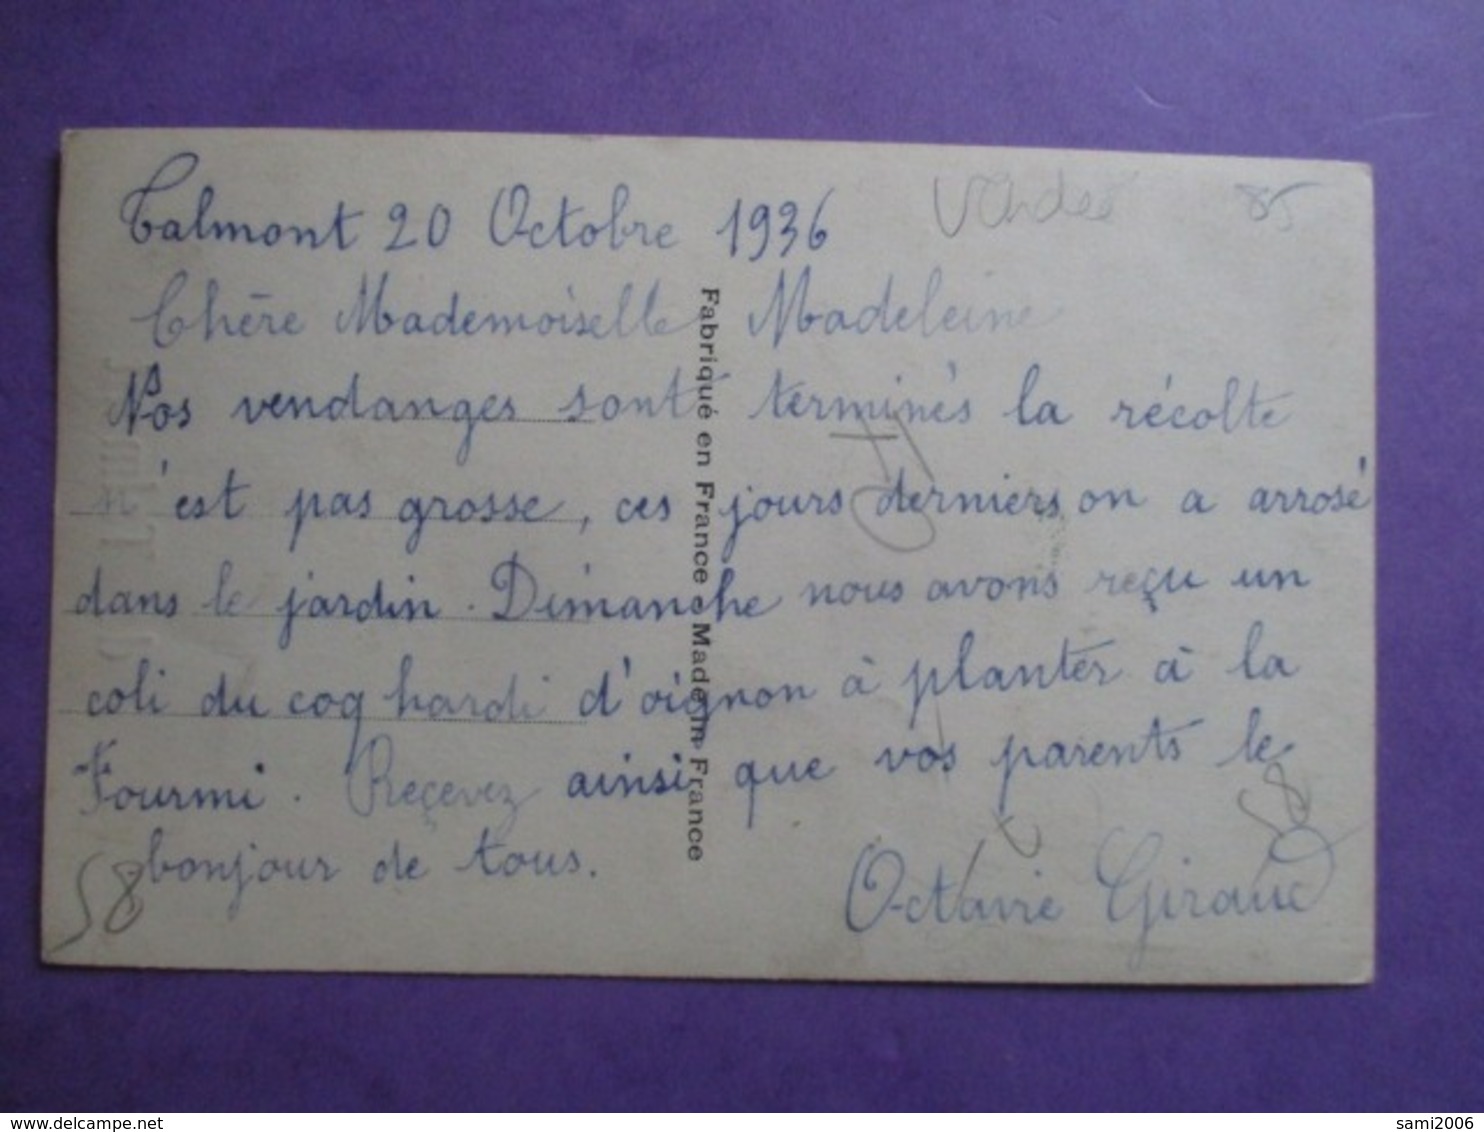 Talmont 20 Octobre 1936
Vendée 85
Chère Mademoiselle Madeleine
Nos vendanges sont terminés la récolte
n'est pas grosse, ces jours derniers on a arrosé
dans le jardin. Dimanche nous avons reçu un
coli du coq hardi d'oignon à planter à la
Fourmi. Reçevez ainsi que vos parents le
bonjour de tous.
Octavie Giraud
58
58
Fabriqué en France - Made in France
www.delcampe.net
sami2006